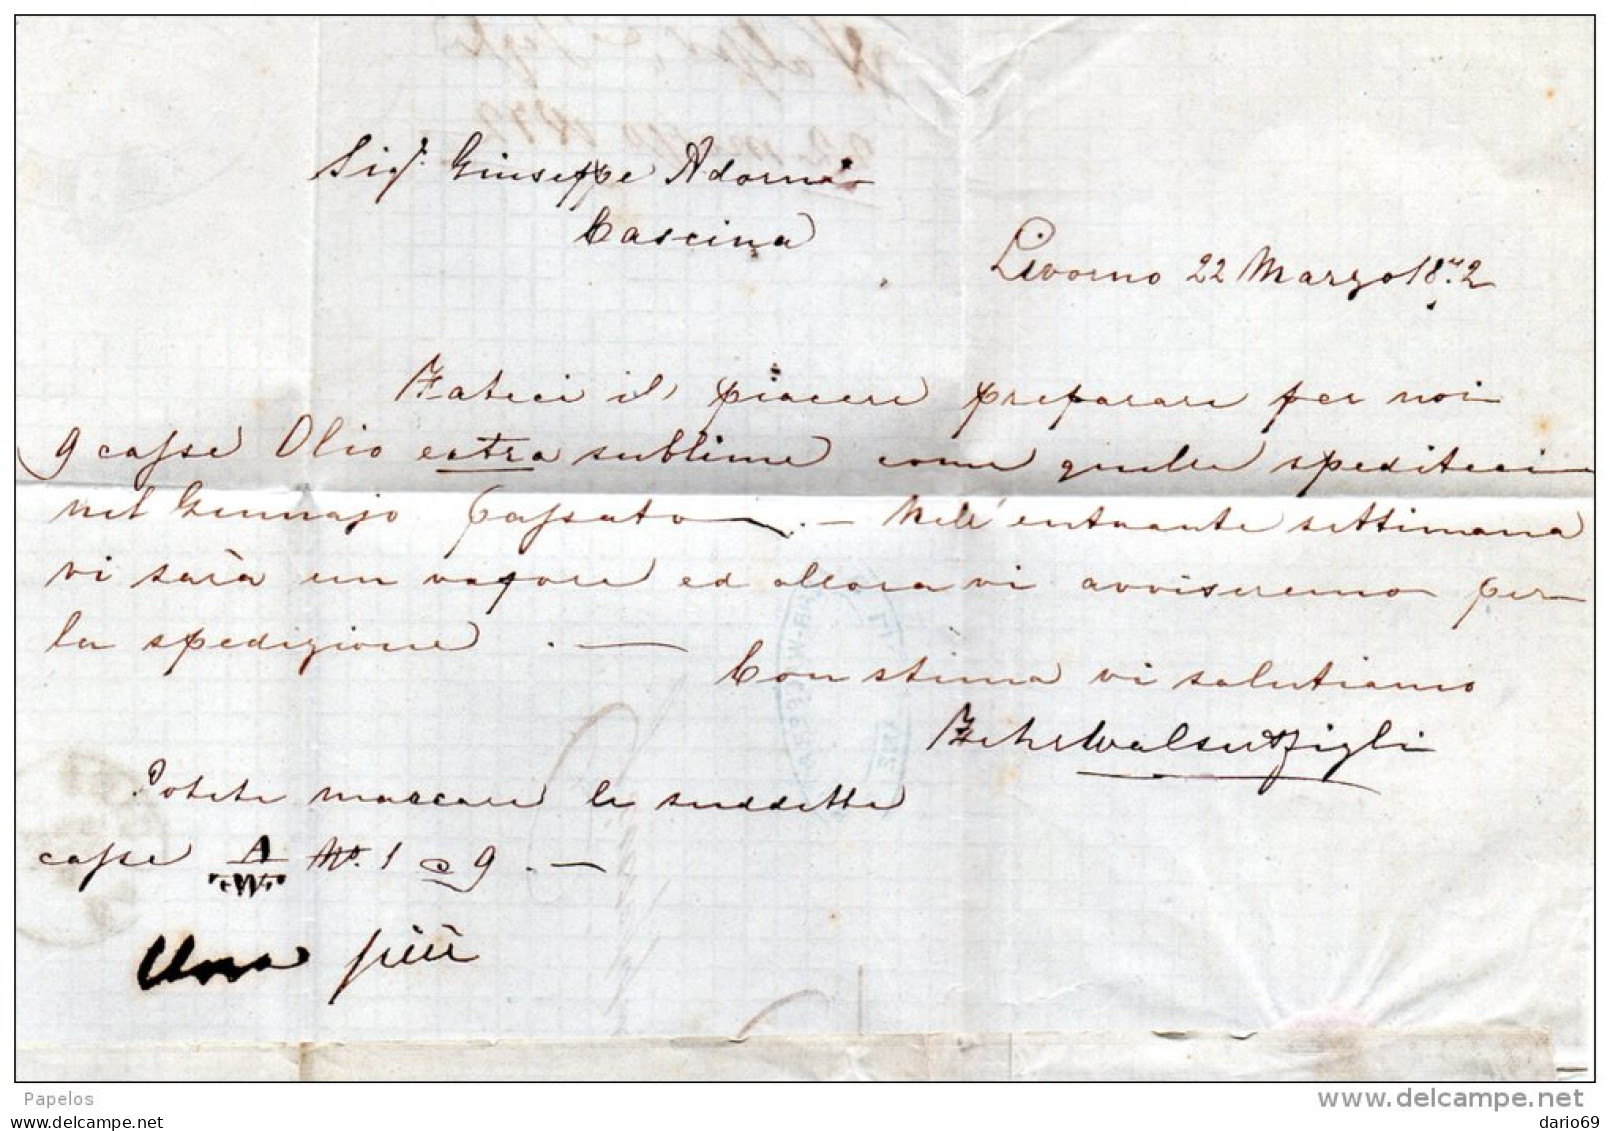 Sigr. Giuseppe Adorni
Cascina
Livorno 22 Marzo 1872
Fateci il piacere preparare per noi
9 casse Olio extra sublime come quelle spediteci
nel Gennajo passato . — Nell'entrante settimana
vi sarà un vapore ed allora vi avviseremo per
la spedizione . —
Con stima vi salutiamo
Figli
Potete marcare le suddette
casse A/W No. 1 a 9 . —
Una più
Papelos
www.delcampe.net
dario69